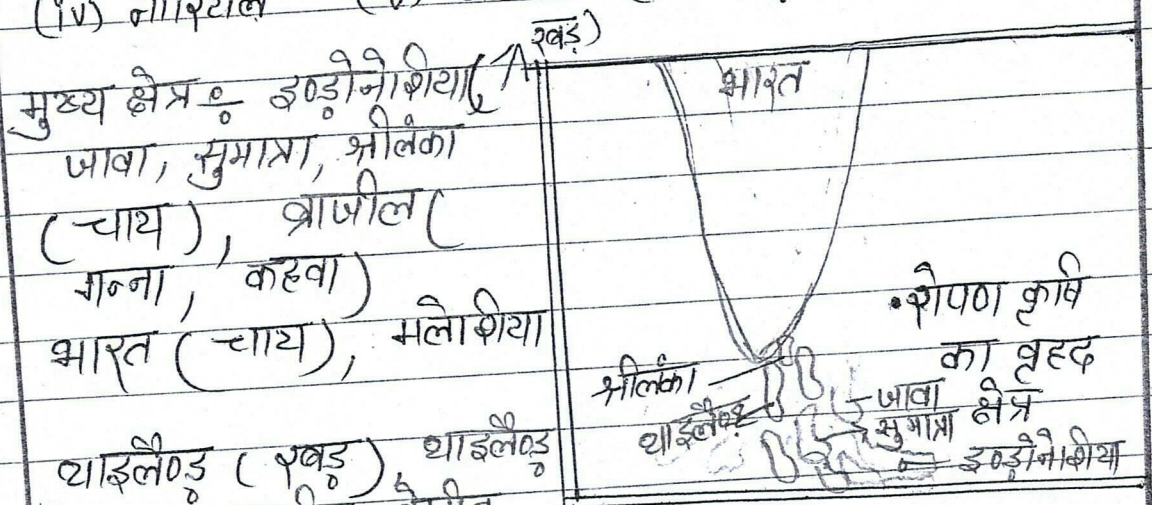 (iv) नारियल
रबड़)
मुख्य क्षेत्र ÷ इण्ड़ोनेशिया(
जावा, सुमात्रा, श्रीलंका
(चाय), ब्राजील(
गन्ना, कहवा)
भारत (चाय), मलेशिया
थाइलैण्ड़ (रबड़), थाइलैण्ड़
भारत
• रोपण कृषि
का वृहद
क्षेत्र
श्रीलंका
थाइलैण्ड़
जावा
सुमात्रा
इण्ड़ोनेशिया